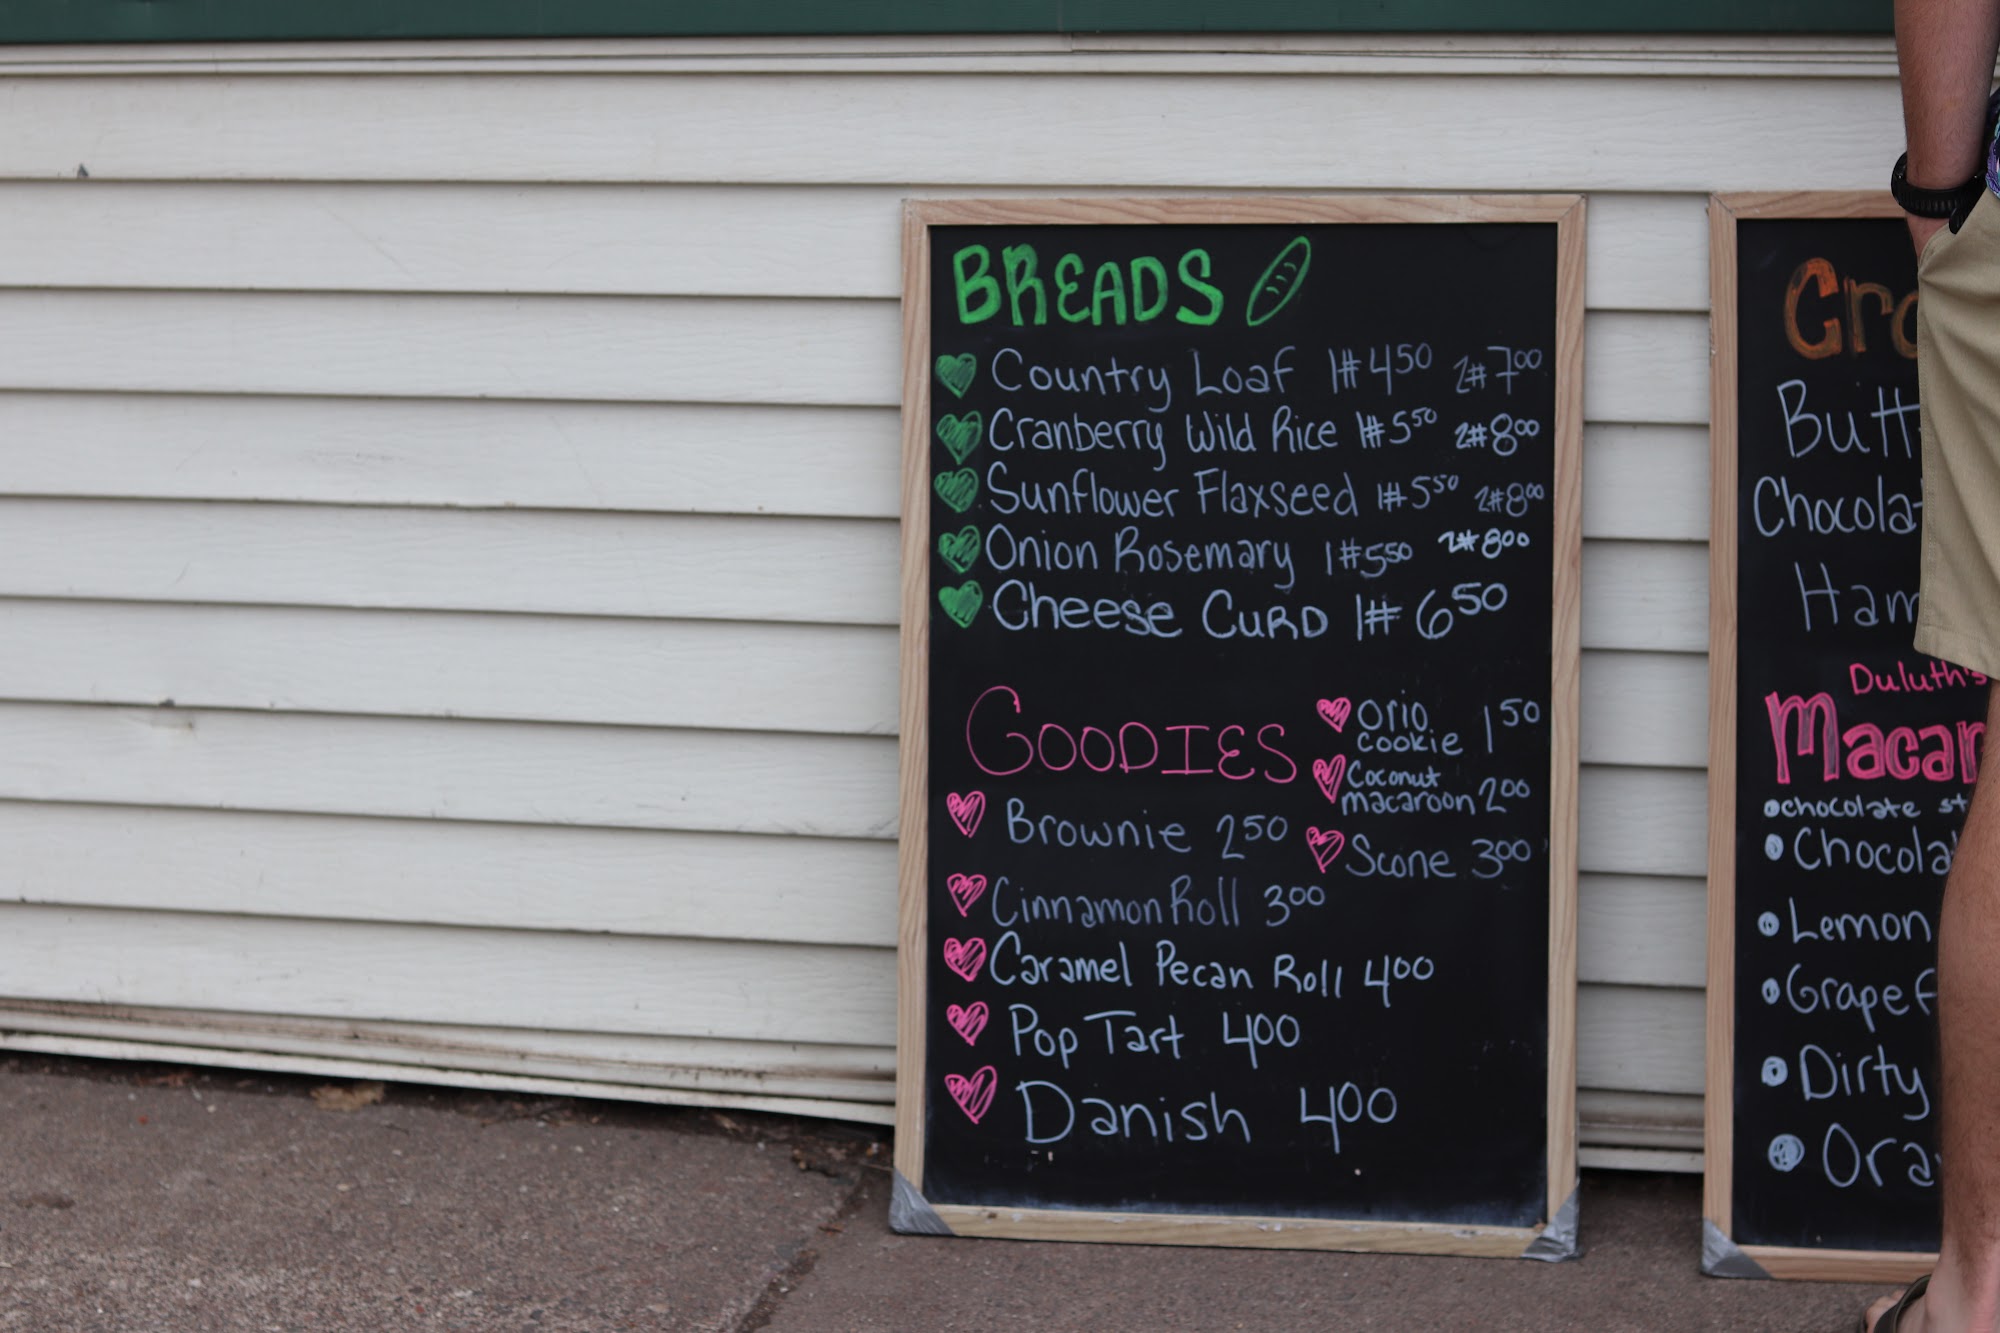 BREADS
Country Loaf 1# 4.50 2# 7.00
Cranberry Wild Rice 1# 5.50 2# 8.00
Sunflower Flaxseed 1# 5.50 2# 8.00
Onion Rosemary 1# 5.50 2# 8.00
Cheese CURD 1# 6.50
GOODIES
Brownie 2.50
Cinnamon Roll 3.00
Caramel Pecan Roll 4.00
Pop Tart 4.00
Danish 4.00
Orio
cookie 1.50
Coconut
macaroon 2.00
Scone 3.00
Cro
Butt
Chocola
Ham
Duluth's
Macar
chocolate st
Chocola
Lemon
Grapef
Dirty
Ora